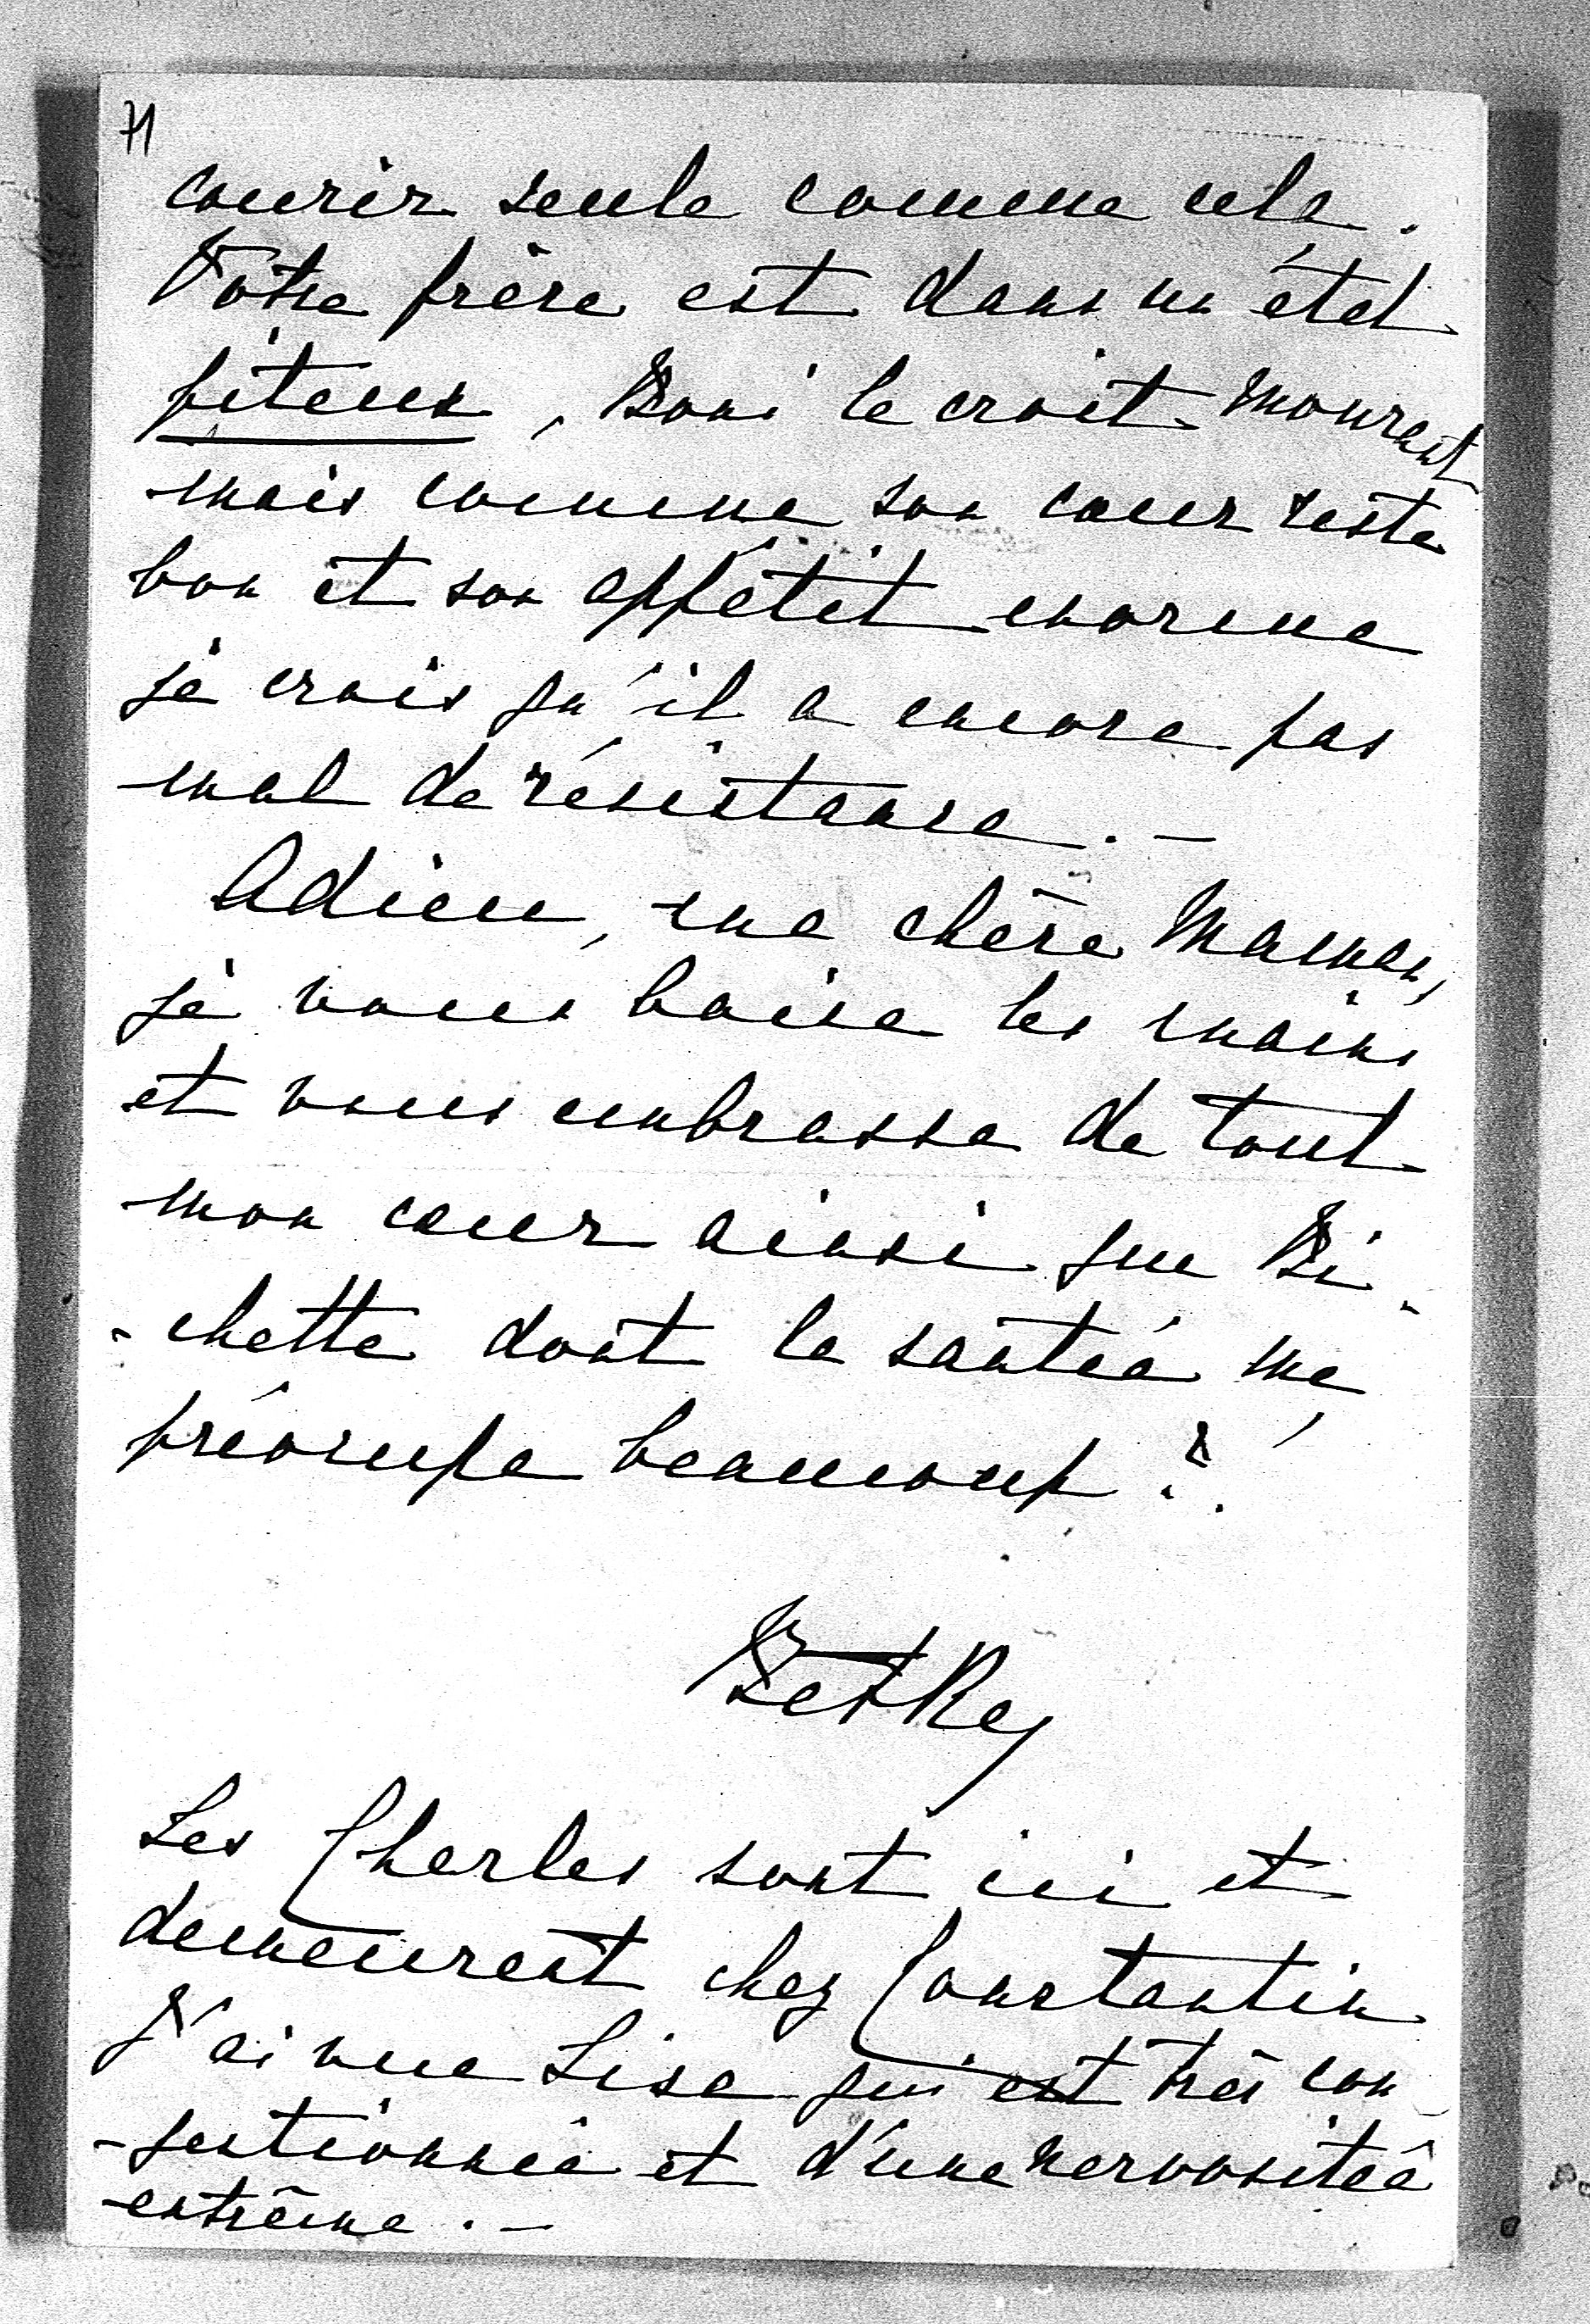 71
courir seule comme cela.
Votre frère est dans un état
piteux, Boni le croit mourant
mais comme son cœur reste
bon et son appétit enorme
je crois qu'il a encore pas
mal de résistance. —
Adieu, ma chère Maman,
je vous baise les mains
et vous embrasse de tout
mon cœur ainsi que Bi-
-chette dont la santée me
préocupe beaucoup.
Betka
Les Charles sont ici et
demeurent chez Constantin
J'ai vue Lise qui est très con-
-gestionnée et d'une nervositée
extrême. —